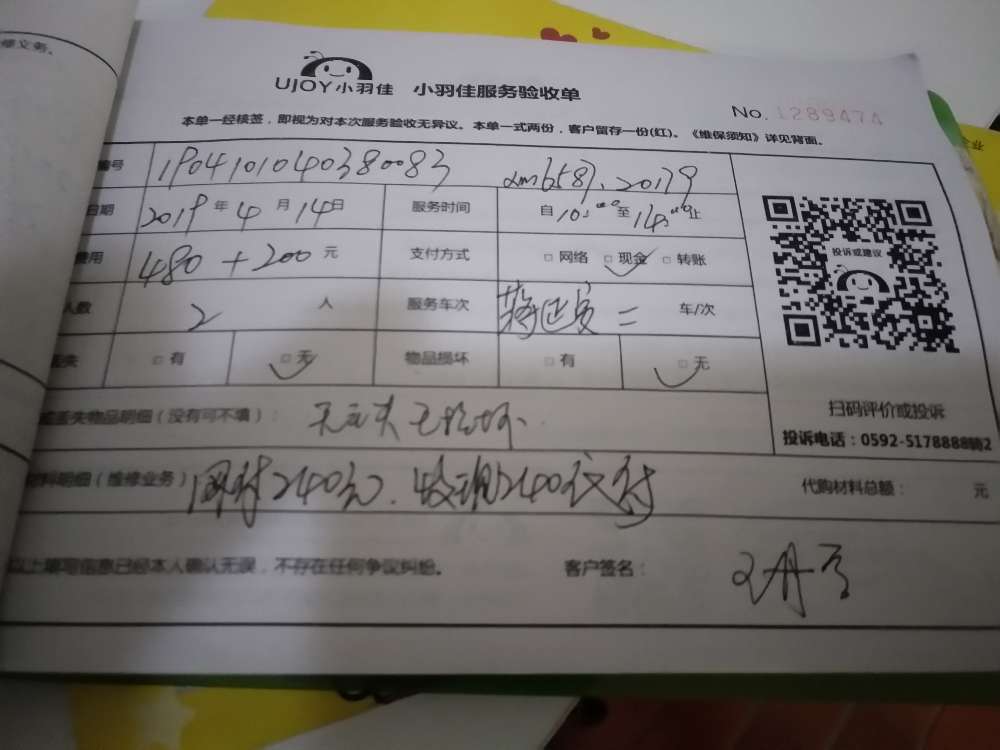 修义务。
UJOY小羽佳 小羽佳服务验收单
No. 1289474
本单一经核签，即视为对本次服务验收无异议。本单一式两份，客户留存一份(红)。《维保须知》详见背面。
编号 190410104038 0083
日期 2019 年 4 月 14 日 服务时间 自 至 止
费用 480 + 200 元 支付方式 □ 网络 □ 现金 □ 转账
人数 2 人 服务车次 车/次
丢失 □ 有 □ 无 物品损坏 □ 有 □ 无
投诉或建议
扫码评价或投诉
投诉电话：0592-5178888转2
或丢失物品明细（没有可不填）： 无丢失无损坏
材料明细（维修业务） 240元 代购材料总额： 元
以上填写信息已经本人确认无误，不存在任何争议纠纷。 客户签名：